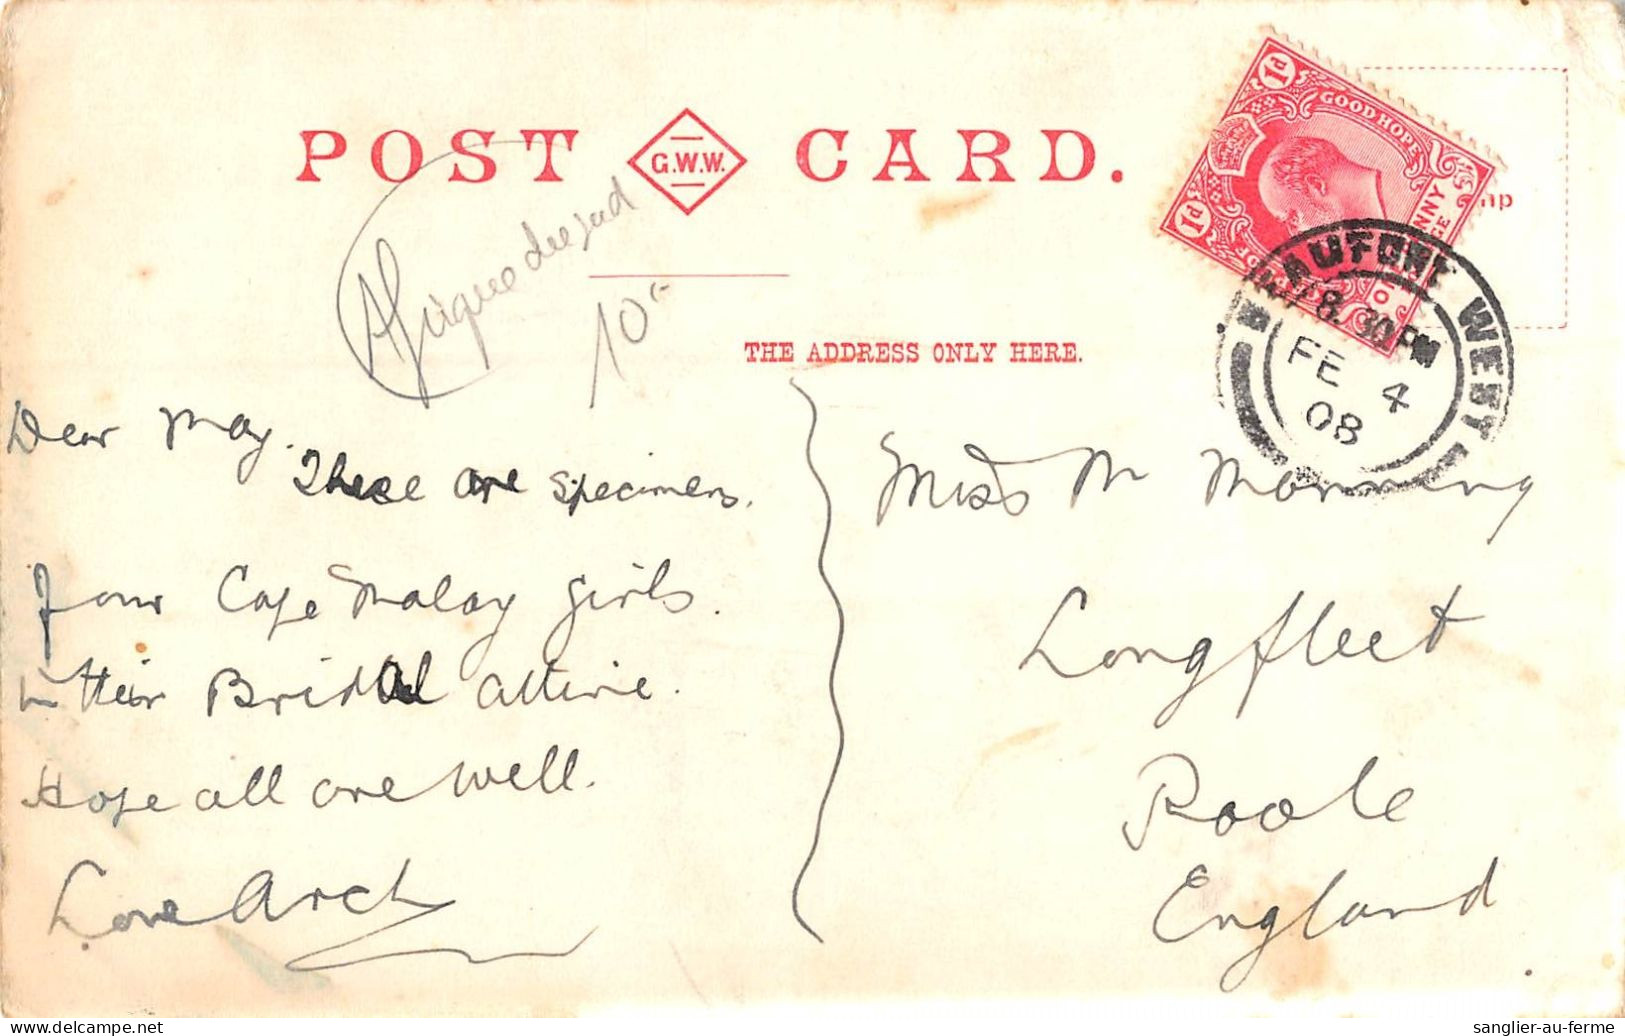 POST G.W.W. CARD.
1d GOOD HOPE
1d
Afrique du sud
10
THE ADDRESS ONLY HERE.
BEAUFORT WEST
8.30 PM
FE 4
08
Dear May.
These are specimens.
four Cape Malay girls.
in their Bridal attire.
Hope all are well.
Love Arch
Miss M Manning
Longfleet
Poole
England
delcampe.net
sanglier-au-ferme